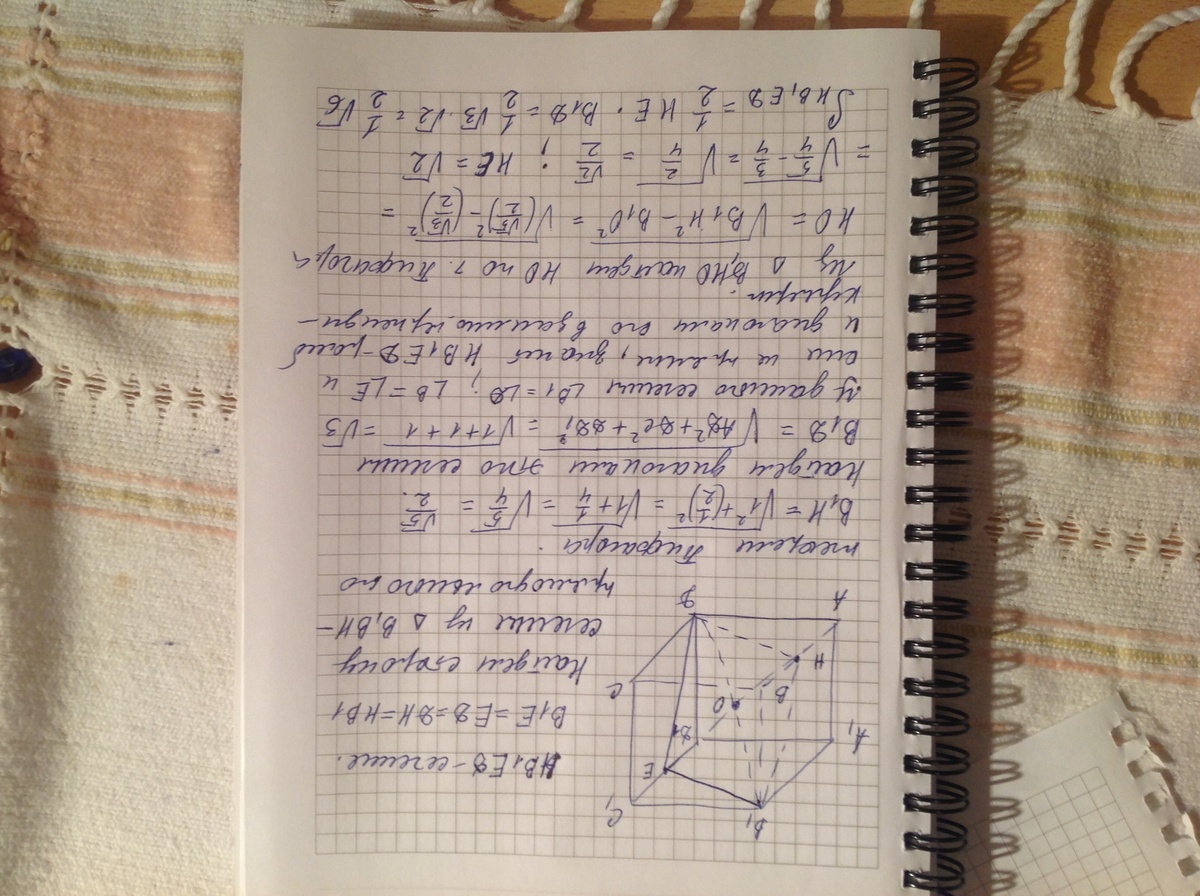 B₁ C₁
A₁ E D₁
O B C
H
A D
HB₁ED - сечение.
B₁E = ED = DH = HB₁
Найдем сторону
сечение из △ B₁BH -
прямоугольного по
теореми Пифагора.
B₁H = √(1² + (1/2)²) = √(1 + 1/4) = √(5/4) = √5/2.
Найдем диагонали это сечения
B₁D = √(AD² + DC² + DD₁²) = √(1+1+1) = √3
У данного сечения ∠B₁ = ∠D; ∠B = ∠E и
они не прямы, значит HB₁ED - ромб
и диагонали его взаимно перпенди-
кулярн.
Из △ B₁HO найдем HO по т. Пифагора
HO = √(B₁H² - B₁O²) = √((√5/2)² - (√3/2)²) =
= √(5/4 - 3/4) = √(2/4) = √2/2; HE = √2
S HB₁ED = 1/2 HE · B₁D = 1/2 √3 · √2 = 1/2 √6